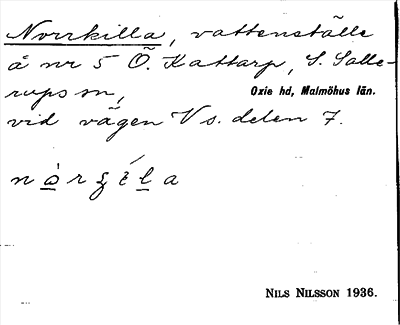 Norrkilla, vattenställe
å nr 5 Ö. Kattarp, S. Salle-
rups sn, Oxie hd, Malmöhus län.
vid vägen V s. delen 7.
NILS NILSSON 1936.